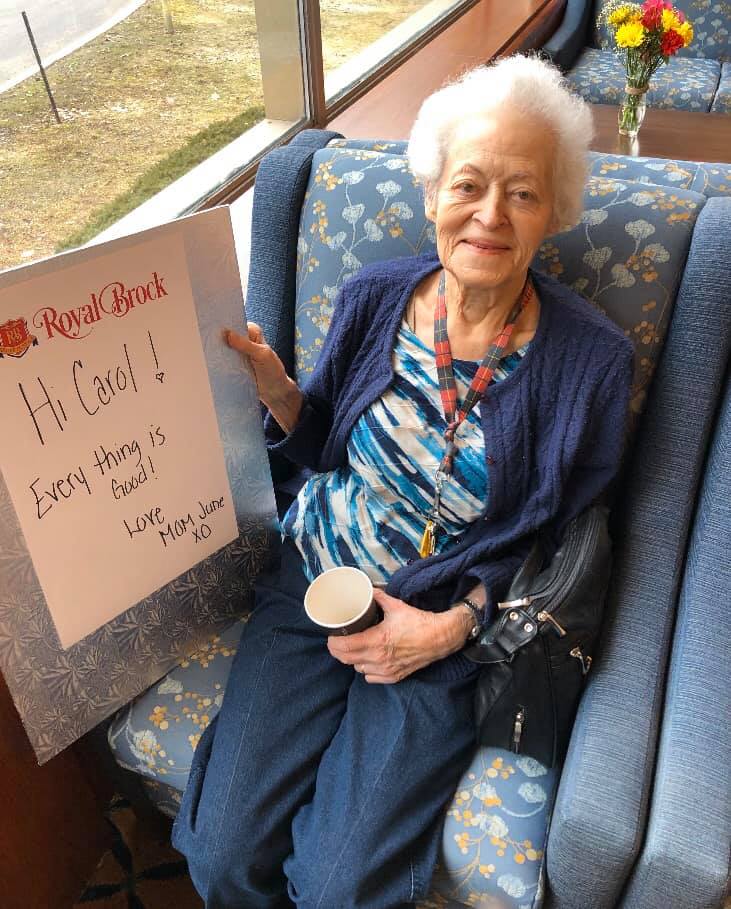 RB
Royal Brock
Hi Carol!
Every thing is
Good!
Love
MOM June
XO